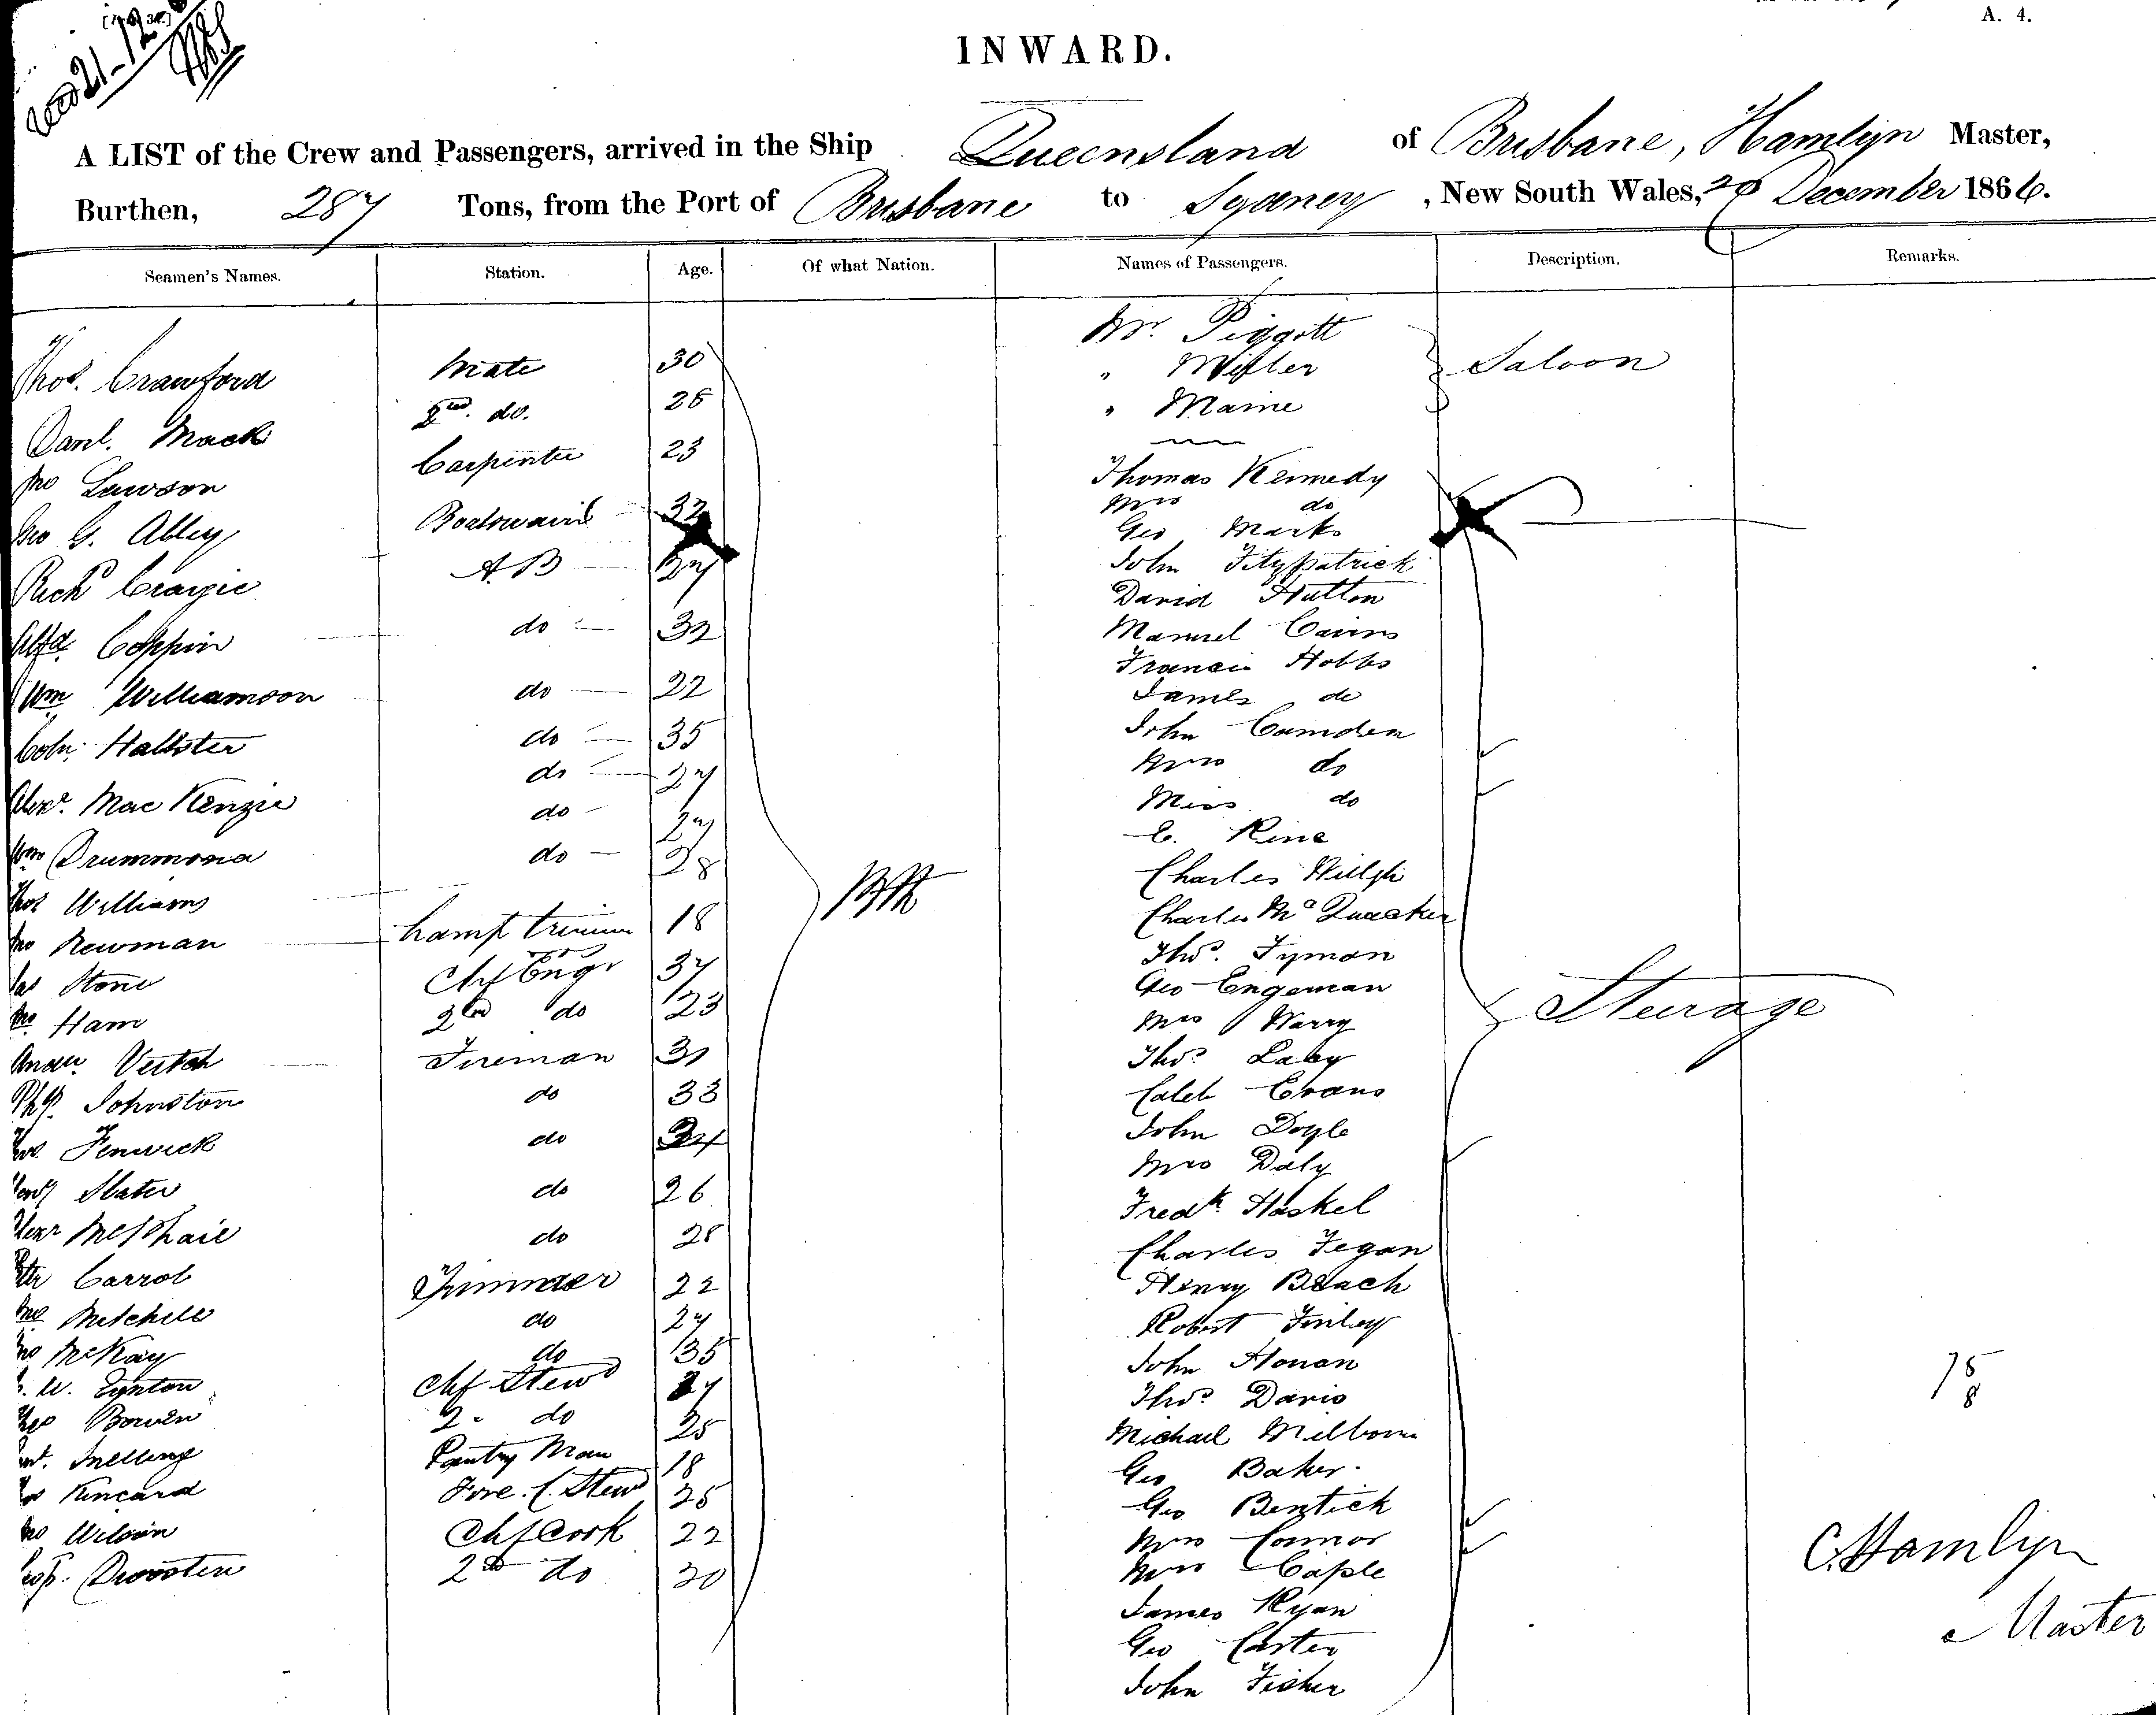 A. 4.
INWARD.
A LIST of the Crew and Passengers, arrived in the Ship Queensland of Brisbane, Hamlyn Master,
Burthen, 287 Tons, from the Port of Brisbane to Sydney, New South Wales, 20 December 1866.
Seamen's Names. Station. Age. Of what Nation. Names of Passengers. Description. Remarks.
Mr. Piggott
Thos. Crawford Mate 30 " Miller Saloon
Danl. Mack 2nd. do. 26 " Maine
Jno Lawson Carpenter 23 Thomas Kennedy
Mrs do
Jno G. Abley Boatswain 32 Geo Marks
Richd Craigie AB 27 John Fitzpatrick
David Hutton
Alfd. Coppin do 32 Manuel Cairns
Francis Hobbs
Wm Williamson do 22 James do
Coln. Halkster do 35 John Camden
Mrs do
Alexr. MacKenzie do 27 Miss do
Wm Drummond do 27 C. Rine
Thos Williams do 28 Charles
Jno Newman Lamp trimmer 18 Charles Mc
Jas Stone Chf Engr 37 Thos. Tyman
Jno Ham 2nd do 23 Geo Engeman
Mrs Warry
Andw. Veitch Fireman 31 Thos. Laby
Php. Johnston do 33 Caleb Evans
Fenwick do 34 John Doyle
Mrs Daly
Slater do 26 Fredk. Haskel
Alexr McPhail do 28 Charles Fegan
Petr Carrol Trimmer 22 Henry Beach
Jno Mitchell do 27 Robert Finley
Jno McKay do 35 John Honan
Chf Stewd 27 Thos. Davis
Bowen 2 do 25 Michael Milborn
Snelling Pantry Man 18 Geo Baker
Kincard Fore. C. Stewd 25 Geo Bentick
Jno Wilson Chf Cook 22 Mrs Connor
2nd do 30 Mrs Caple
James Ryan
Geo Carter
John Fisher
Steerage
75
8
C. Hamlyn
Master